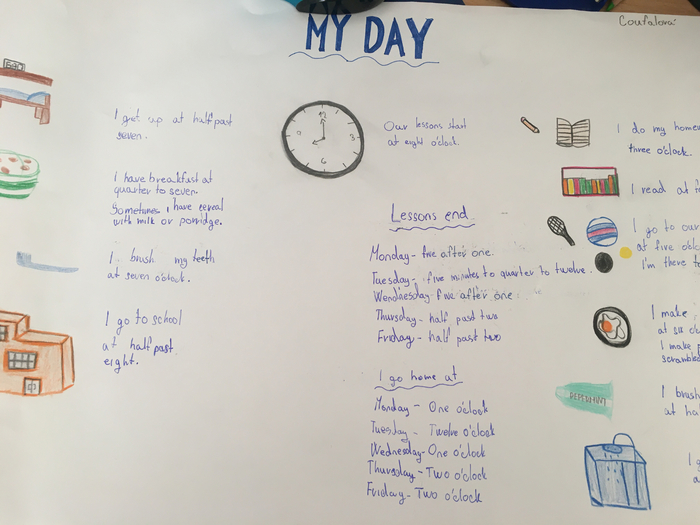 MY DAY
Coufalová
I get up at half past
seven.
I have breakfast at
quarter to seven.
Sometimes I have cereal
with milk or porridge.
I brush my teeth
at seven o'clock.
I go to school
at half past
eight.
12
3
6
9
Our lessons start
at eight o'clock.
Lessons end
Monday - five after one.
Tuesday - five minutes to quarter to twelve.
Wendnesday five after one.
Thursday - half past two
Friday - half past two
I go home at
Monday - One o'clock
Tuesday - Twelve o'clock
Wednesday - One o'clock
Thursday - Two o'clock
Friday - Two o'clock
I do my home
three o'clock.
I read at
I go to our
at five o'clo
I'm there
I make
at six
I make
scramble
PEPERMINT
I brush
at ha
I g